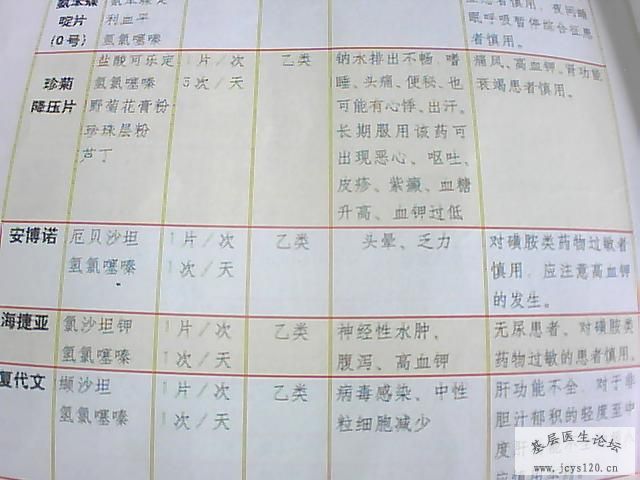 啶片 利血平
(0号) 氢氯噻嗪
眠呼吸暂停综合征患
者慎用。
珍菊
降压片
盐酸可乐定
氢氯噻嗪
野菊花膏粉
珍珠层粉
芦丁
1片/次
3次/天
乙类
钠水排出不畅、嗜
睡、头痛、便秘、也
可能有心悸、出汗。
长期服用该药可
出现恶心、呕吐、
皮疹、紫癜、血糖
升高、血钾过低
痛风、高血钾、肾功能
衰竭患者慎用。
安博诺
厄贝沙坦
氢氯噻嗪
1片/次
1次/天
乙类
头晕、乏力
对磺胺类药物过敏者
慎用，应注意高血钾
的发生。
海捷亚
氯沙坦钾
氢氯噻嗪
1片/次
1次/天
乙类
神经性水肿，
腹泻、高血钾
无尿患者、对磺胺类
药物过敏的患者慎用。
复代文
缬沙坦
氢氯噻嗪
1片/次
1次/天
乙类
病毒感染、中性
粒细胞减少
肝功能不全，对于非
胆汁郁积的轻度至中
度肝
基层医生论坛
www.jcys120.cn